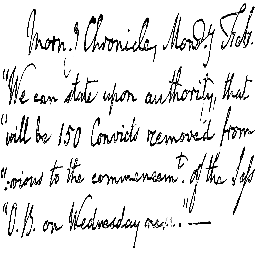 Morn.g Chronicle, Mond.y Feb.
"We can state upon authority, that
"will be 150 Convicts removed from
":vious to the commencem.t of the Sess
"O.B. on Wednesday nex." —